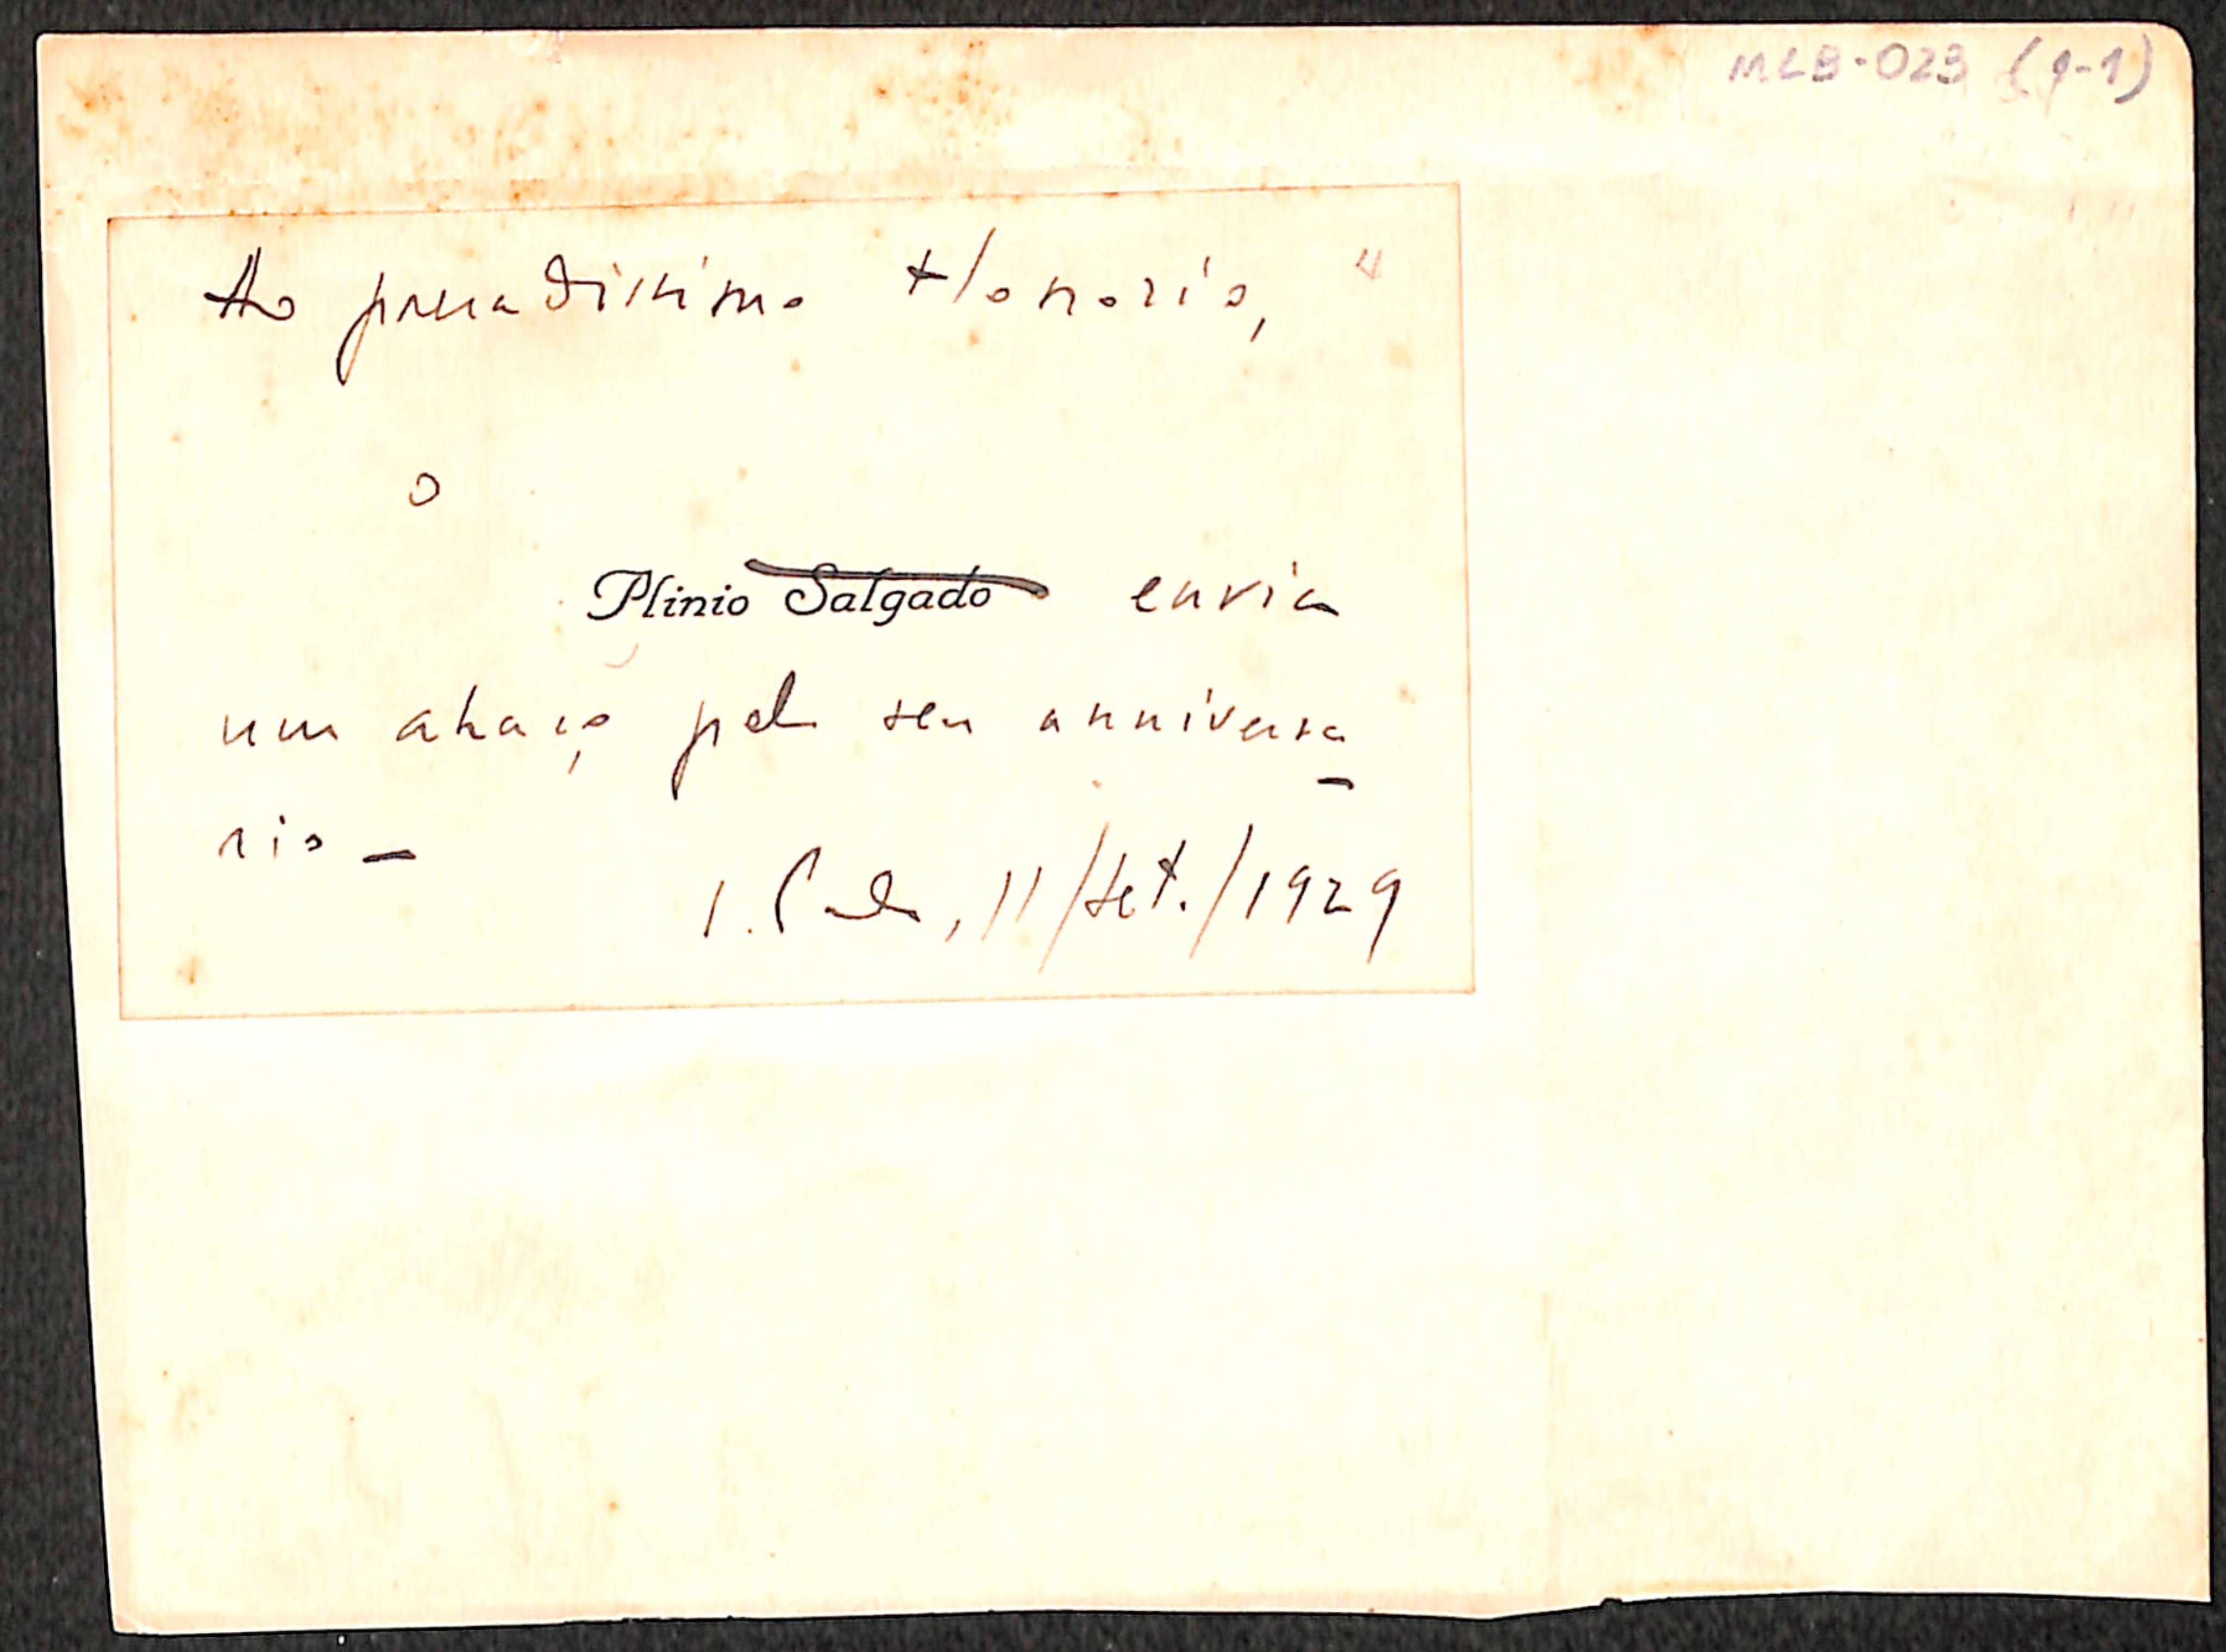 MLB-023 (9-1)
Ao presadissimo Honorio,
o
Plinio Salgado envia
um abraço pelo seu anniversa
rio —
S. Paulo, 11/Set./1929